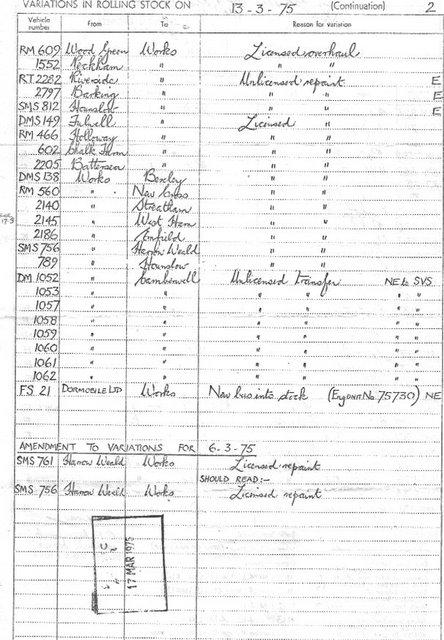 VARIATIONS IN ROLLING STOCK ON 13-3-75 (Continuation) 2
Vehicle number From To Reason for variation
RM 609 Wood Green Works Licensed overhaul
1552 Peckham " " "
RT 2282 Riverside " Unlicensed repaint E
2797 Barking " " " E
SMS 812 Hounslow " " " E
DMS 149 Fulwell " Licensed "
RM 466 Holloway " " "
602 Chalk Farm " " "
2205 Battersea " " "
DMS 138 Works Bexley " "
RM 560 " New Cross " "
2140 " Streatham " "
2145 " West Ham " "
2186 " Enfield " "
SMS 756 " Harrow Weald " "
789 " Hounslow " "
DM 1052 " Camberwell Unlicensed transfer NE to SVS
1053 " " " " " "
1057 " " " " " "
1058 " " " " " "
1059 " " " " " "
1060 " " " " " "
1061 " " " " " "
1062 " " " " " "
FS 21 DORMOBILE LTD Works New bus into stock (Eng Unit No. 75730) NE
AMENDMENT TO VARIATIONS FOR 6-3-75
SMS 761 Harrow Weald Works Licensed repaint
SHOULD READ:-
SMS 756 Harrow Weald Works Licensed repaint
17 MAR 1975